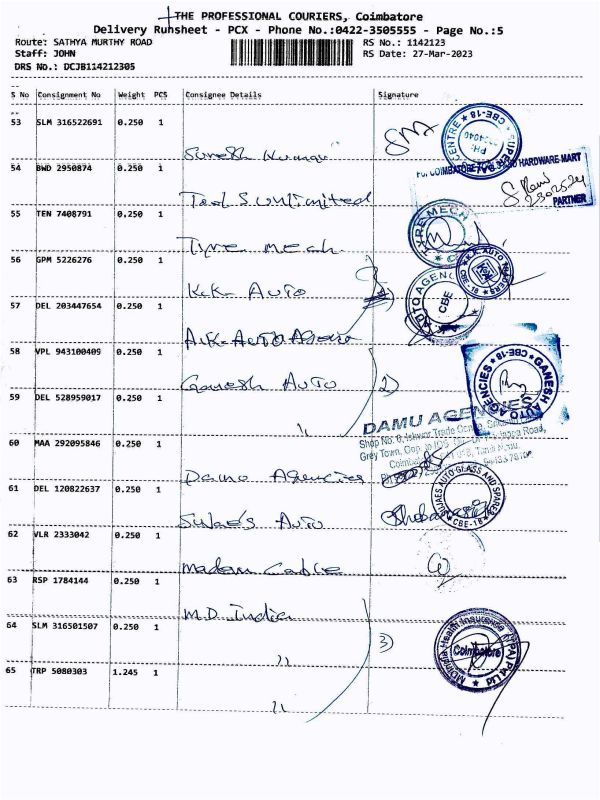 THE PROFESSIONAL COURIERS, Coimbatore
Delivery Runsheet - PCX - Phone No.:0422-3505555 - Page No.:5
Route: SATHYA MURTHY ROAD RS No.: 1142123
Staff: JOHN RS Date: 27-Mar-2023
DRS No.: DCJB114212305
S No Consignment No Weight PCS Consignee Details Signature
53 SLM 316522691 0.250 1
Suresh Kumar
CENTRE ★ CBE-18 ★ SUPER
54 BWD 2950874 0.250 1
HARDWARE MART
PARTNER
Tool S Unlimited
55 TEN 7408791 0.250 1
TYRE MECH
Tyre mech
56 GPM 5226276 0.250 1
K.K. AUTO
CBE-18
K.K. Auto
57 DEL 203447654 0.250 1
AUTO AGENC
CBE
A.K. Auto Agencies
58 VPL 943100409 0.250 1
Ganesh Auto 2)
GANESH AUTO AGENCIES ★ CBE-18 ★
59 DEL 528959017 0.250 1
"
DAMU AGENCIES
Shop No. 6, Ishwar Trade Centre,
Grey Town,
60 MAA 292095846 0.250 1
Damu Agencies
61 DEL 120822637 0.250 1
SUJAES AUTO GLASS AND SPARES
★ CBE-18 ★
Sujae's Auto
62 VLR 2333042 0.250 1
Madern Cable
63 RSP 1784144 0.250 1
M.D. India
64 SLM 316501507 0.250 1 3)
MDIndia Health Insurance (TPA) Pvt Ltd
Coimbatore
"
65 TRP 5080303 1.245 1
"